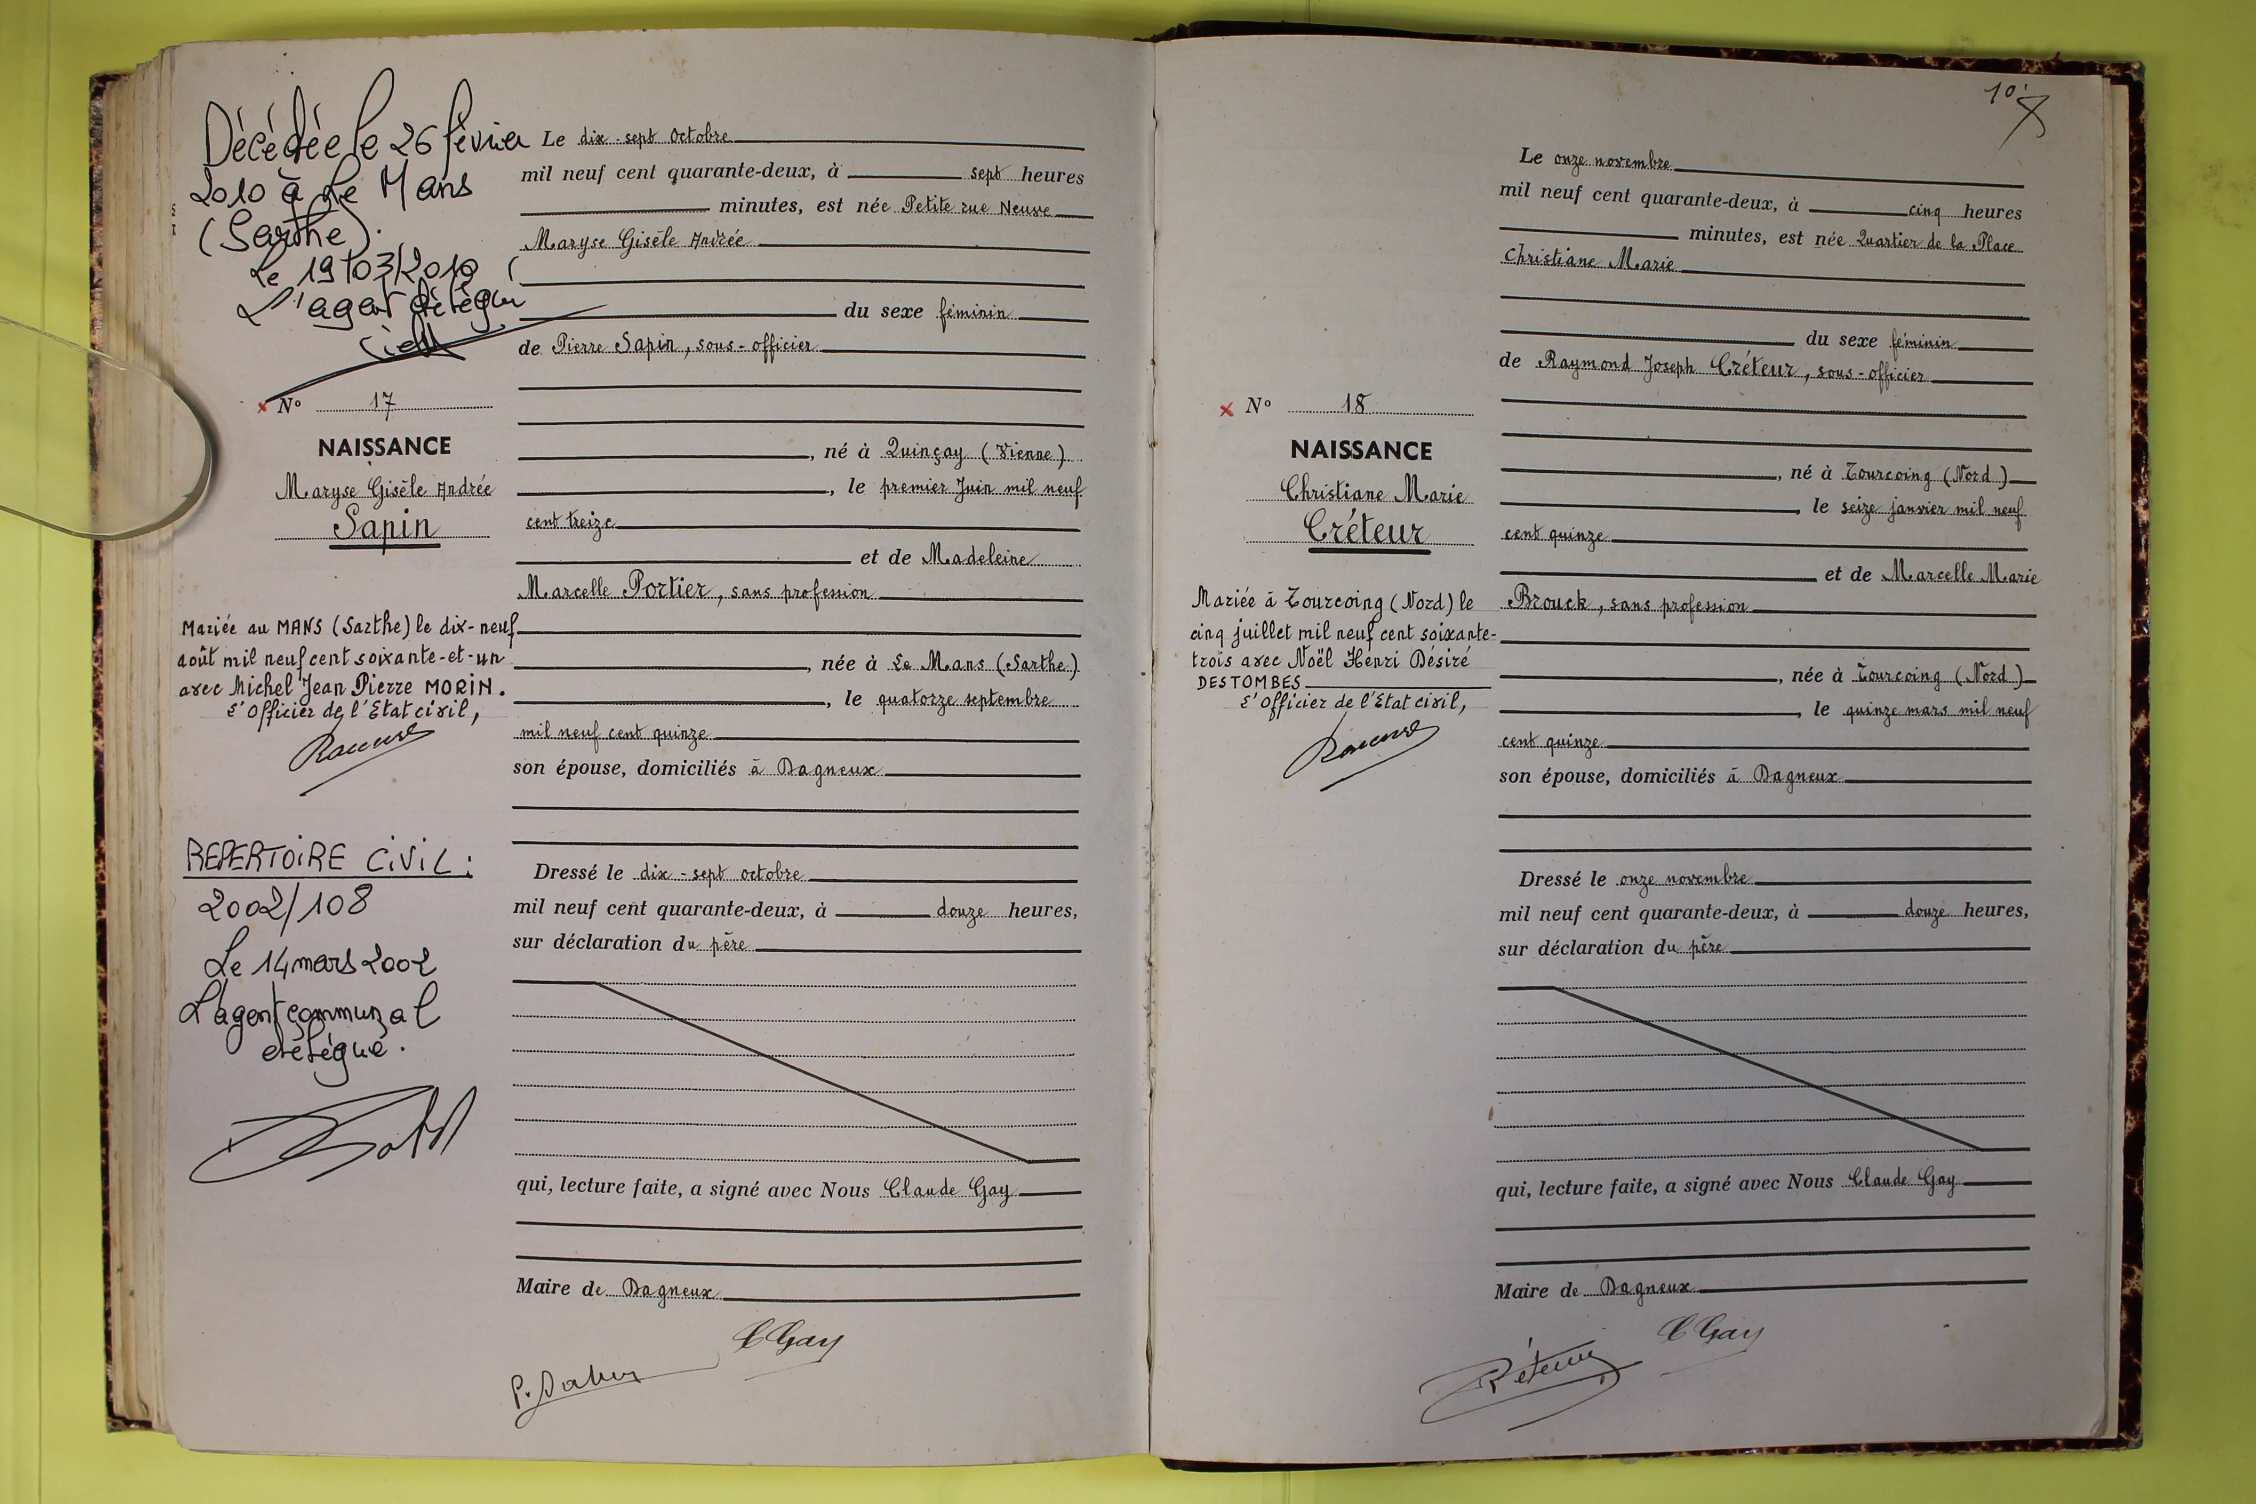 Décédée le 26 février
2010 à Le Mans
(Sarthe).
Le 19/03/2010
L'agent délégué
x N° 17
NAISSANCE
Maryse Gisèle Andrée
Sapin
Mariée au MANS (Sarthe) le dix-neuf
août mil neuf cent soixante-et-un
avec Michel Jean Pierre MORIN.
L'Officier de l'Etat civil,
REPERTOIRE CIVIL :
2002/108
Le 14 mars 2002
L'agent communal
délégué.
Le dix-sept octobre
mil neuf cent quarante-deux, à sept heures
minutes, est née Petite rue Neuve
Maryse Gisèle Andrée
du sexe féminin
de Pierre Sapin, sous-officier
, né à Quinçay (Vienne)
, le premier Juin mil neuf
cent treize
et de Madeleine
Marcelle Portier, sans profession
, née à Le Mans (Sarthe)
, le quatorze septembre
mil neuf cent quinze
son épouse, domiciliés à Dagneux
Dressé le dix-sept octobre
mil neuf cent quarante-deux, à douze heures,
sur déclaration du père
qui, lecture faite, a signé avec Nous Claude Gay
Maire de Dagneux
C Gay
10
x N° 18
NAISSANCE
Christiane Marie
Créteur
Mariée à Tourcoing (Nord) le
cinq juillet mil neuf cent soixante-
trois avec Noël Henri Désiré
DESTOMBES
L'Officier de l'Etat civil,
Le onze novembre
mil neuf cent quarante-deux, à cinq heures
minutes, est née Quartier de la Place
Christiane Marie
du sexe féminin
de Raymond Joseph Créteur, sous-officier
, né à Tourcoing (Nord)
, le seize janvier mil neuf
cent quinze
et de Marcelle Marie
Brouck, sans profession
, née à Tourcoing (Nord)
, le quinze mars mil neuf
cent quinze
son épouse, domiciliés à Dagneux
Dressé le onze novembre
mil neuf cent quarante-deux, à douze heures,
sur déclaration du père
qui, lecture faite, a signé avec Nous Claude Gay
Maire de Dagneux
C Gay